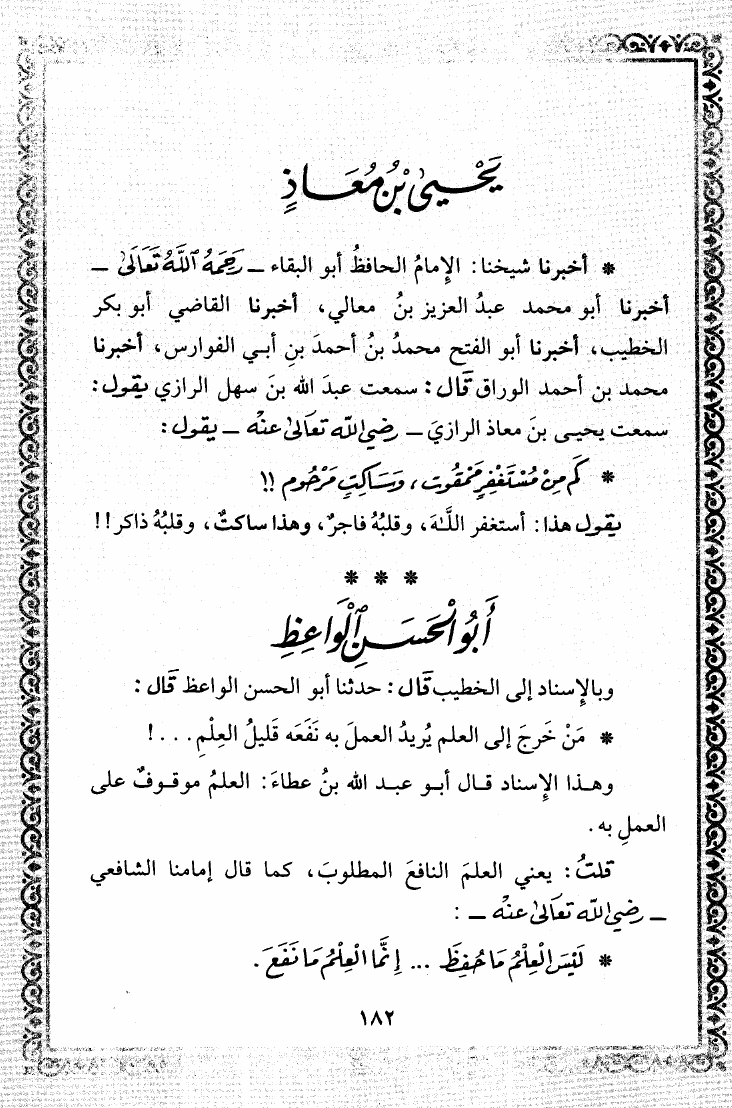 يَحْيَىٰ بْنُ مُعَـاذٍ
* أخبرنا شيخنا: الإمامُ الحافظُ أبو البقاء ــ رَحِمَهُ ٱللَّهُ تَعَالَىٰ ــ
أخبرنا أبو محمد عبدُ العزيز بنُ معالي، أخبرنا القاضي أبو بكر
الخطيب، أخبرنا أبو الفتح محمدُ بنُ أحمدَ بنِ أبي الفوارس، أخبرنا
محمد بن أحمد الوراق قَال: سمعت عبدَ الله بنَ سهل الرازي يقول:
سمعت يحيى بنَ معاذ الرازيَ ــ رضي اللّه تعَالىٰ عنْه ــ يقول:
* كَم مِنْ مُسْتَغْفِرٍ مَمْقُوت، وَسَاكِتٍ مَرْحُوم !!
يقول هذا: أستغفر اللَّـهَ، وقلبُهُ فاجرٌ، وهذا ساكتٌ، وقلبُهُ ذاكر!!
* * *
أَبُو الْحَسَـنِ ٱلْوَاعِظِ
وبالإسناد إلى الخطيب قَال: حدثنا أبو الحسن الواعظ قَال:
* مَنْ خَرجَ إلى العلم يُريدُ العملَ به نَفَعَه قَليلُ العِلْمِ. . . !
وهـذا الإسناد قـال أبـو عبـد الله بنُ عطاءَ: العلمُ موقـوفٌ على
العملِ به.
قلتُ: يعني العلمَ النافعَ المطلوبَ، كما قال إمامنا الشافعي
ــ رضي اللّه تعَالىٰ عنْه ــ :
* لَيْسَ الْعِلْمُ مَا حُفِظَ ... إِنَّمَا الْعِلْمُ مَا نَفَعَ.
١٨٢